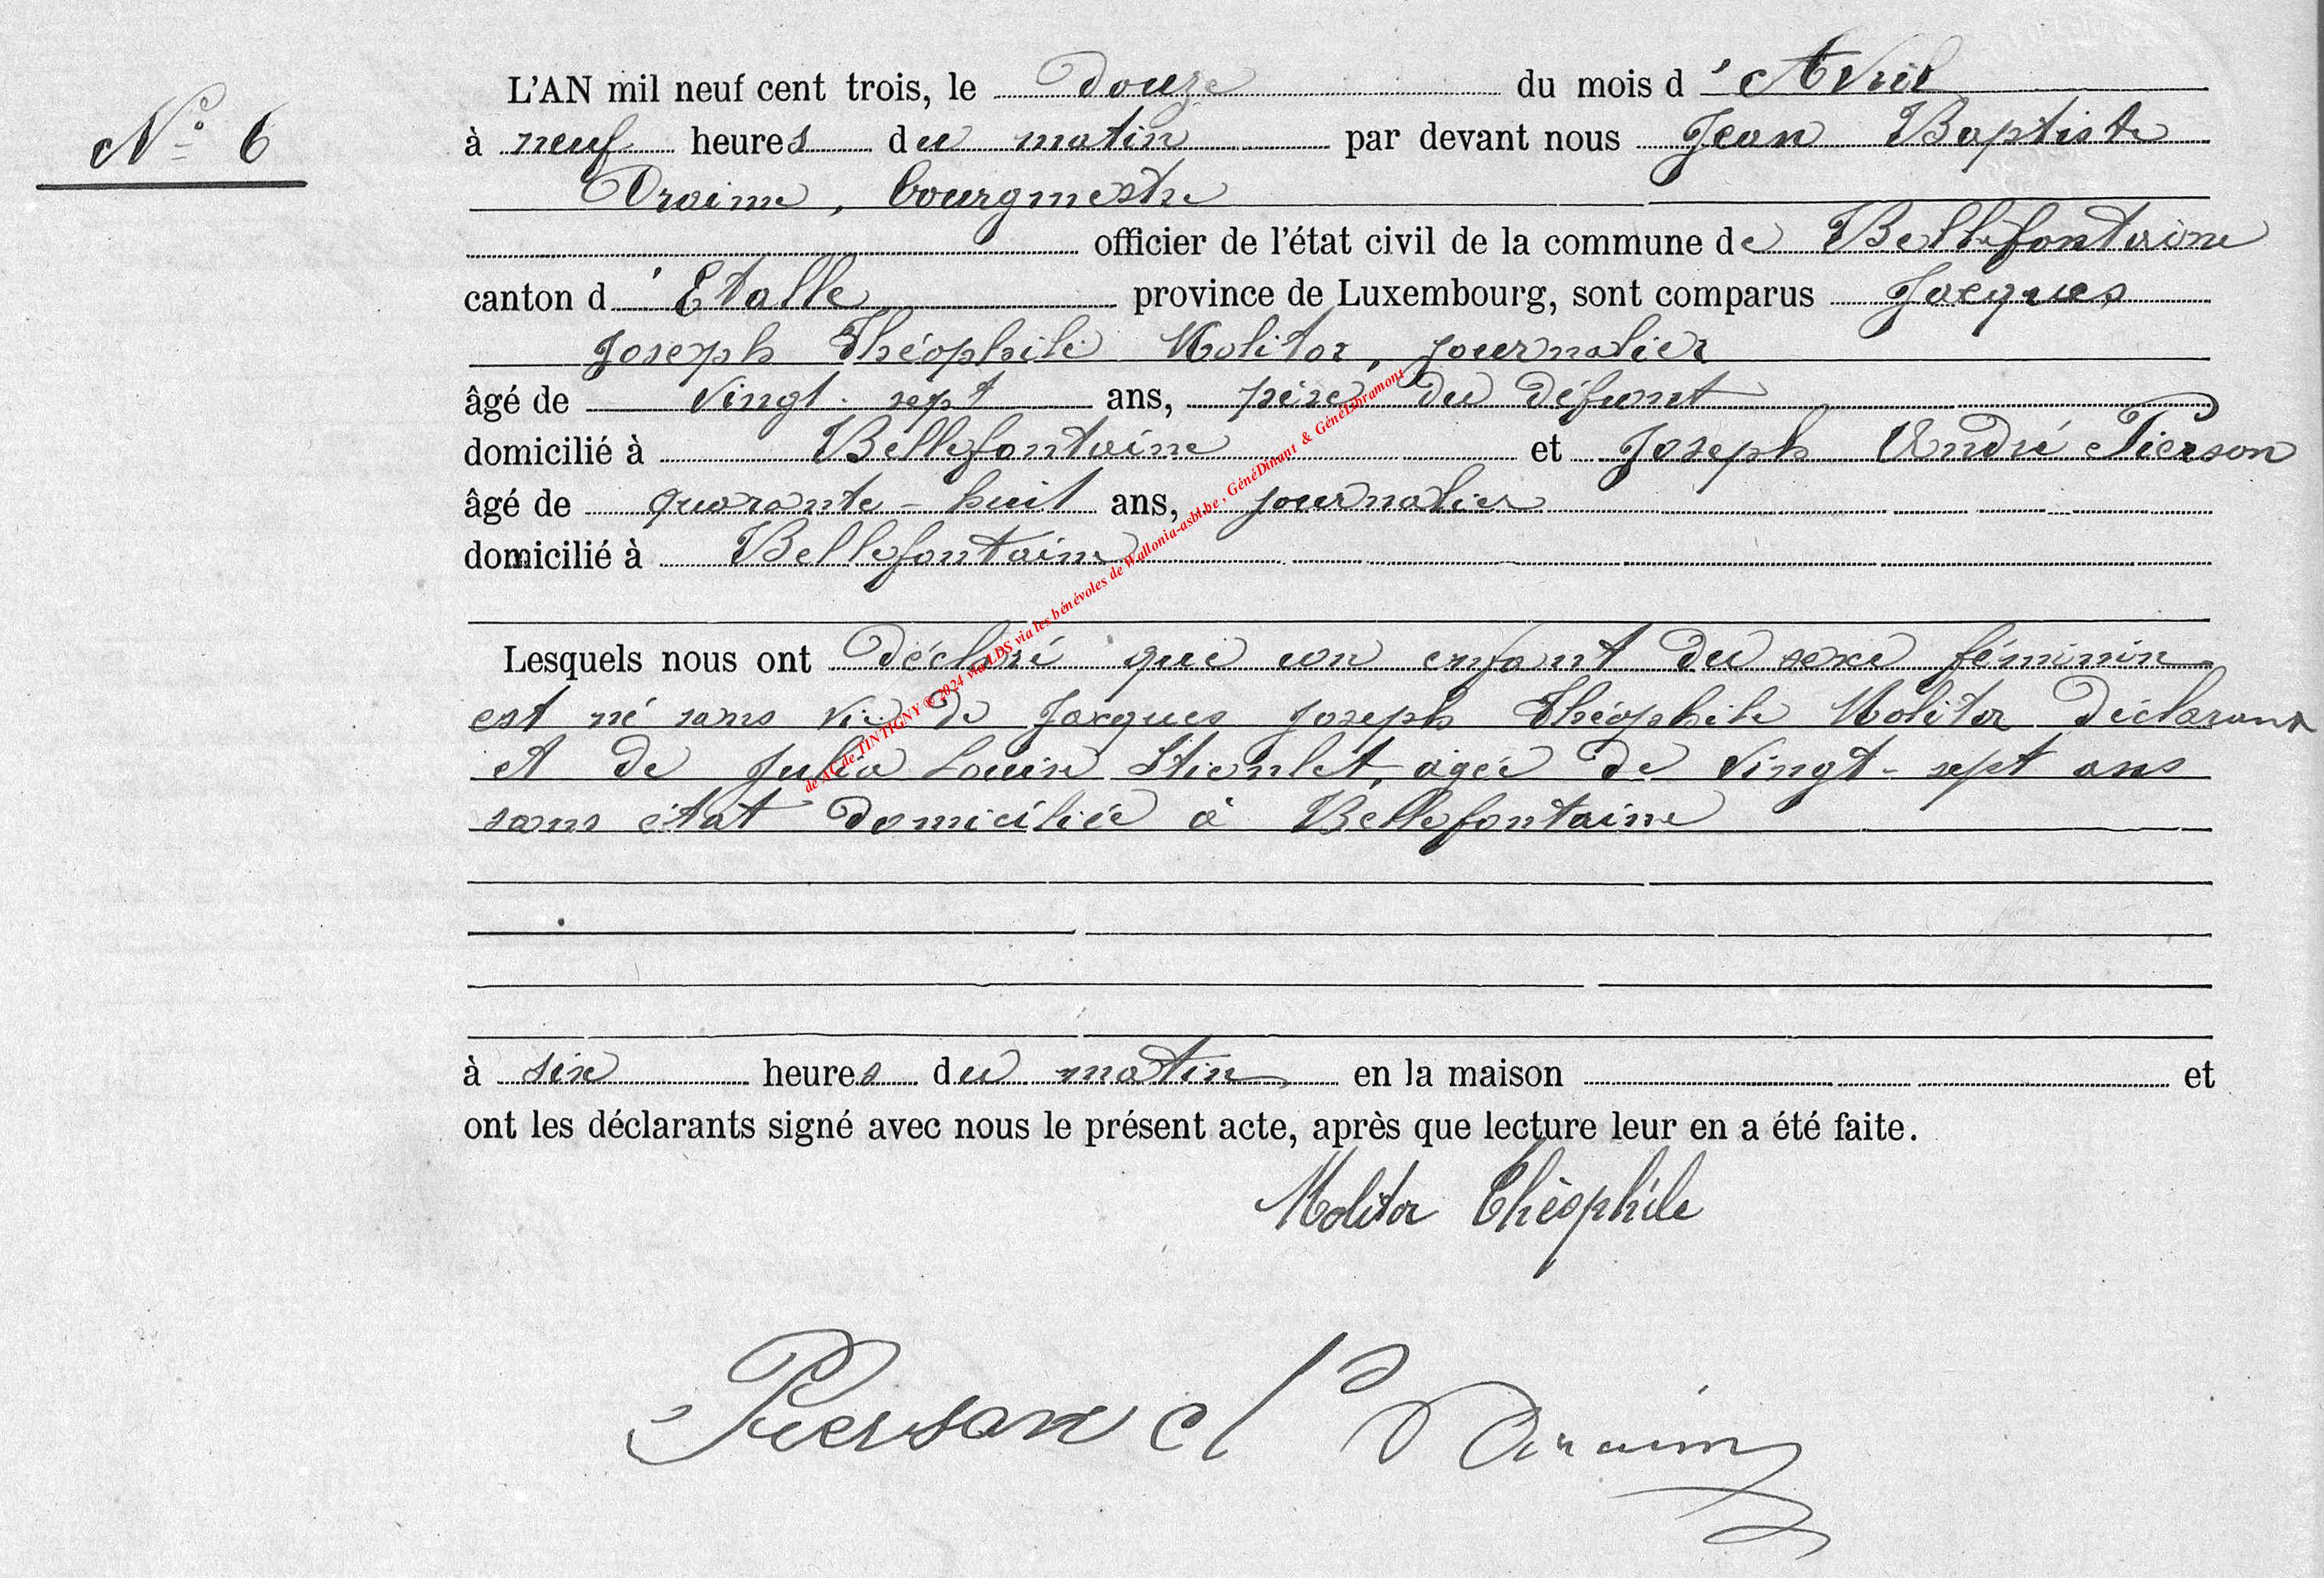 N° 6
L'AN mil neuf cent trois, le Douze du mois d'Avril
à neuf heures du matin par devant nous Jean Baptiste
Draime, bourgmestre
officier de l'état civil de la commune de Bellefontaine
canton d'Etalle province de Luxembourg, sont comparus Jacques
Joseph Théophile Molitor, journalier
âgé de vingt-sept ans, père du défunt
domicilié à Bellefontaine et Joseph André Pierson
âgé de quarante-huit ans, journalier
domicilié à Bellefontaine
Lesquels nous ont déclaré que un enfant du sexe féminin
est né sans vie de Jacques Joseph Théophile Molitor déclarant
et de Julia Louise âgée de vingt-sept ans
sans état domiciliée à Bellefontaine
à six heures du matin en la maison et
ont les déclarants signé avec nous le présent acte, après que lecture leur en a été faite.
Molitor Théophile
Pierson Draime
de AC de TINTIGNY © 2024 via LDS via les bénévoles de Wallonia-asbl.be, GénéDinant & GénéLibramont